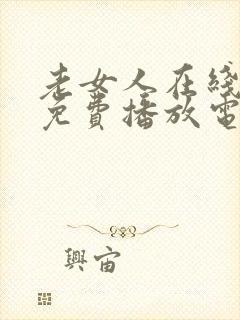 老女人在綫
免費播放電
興宙